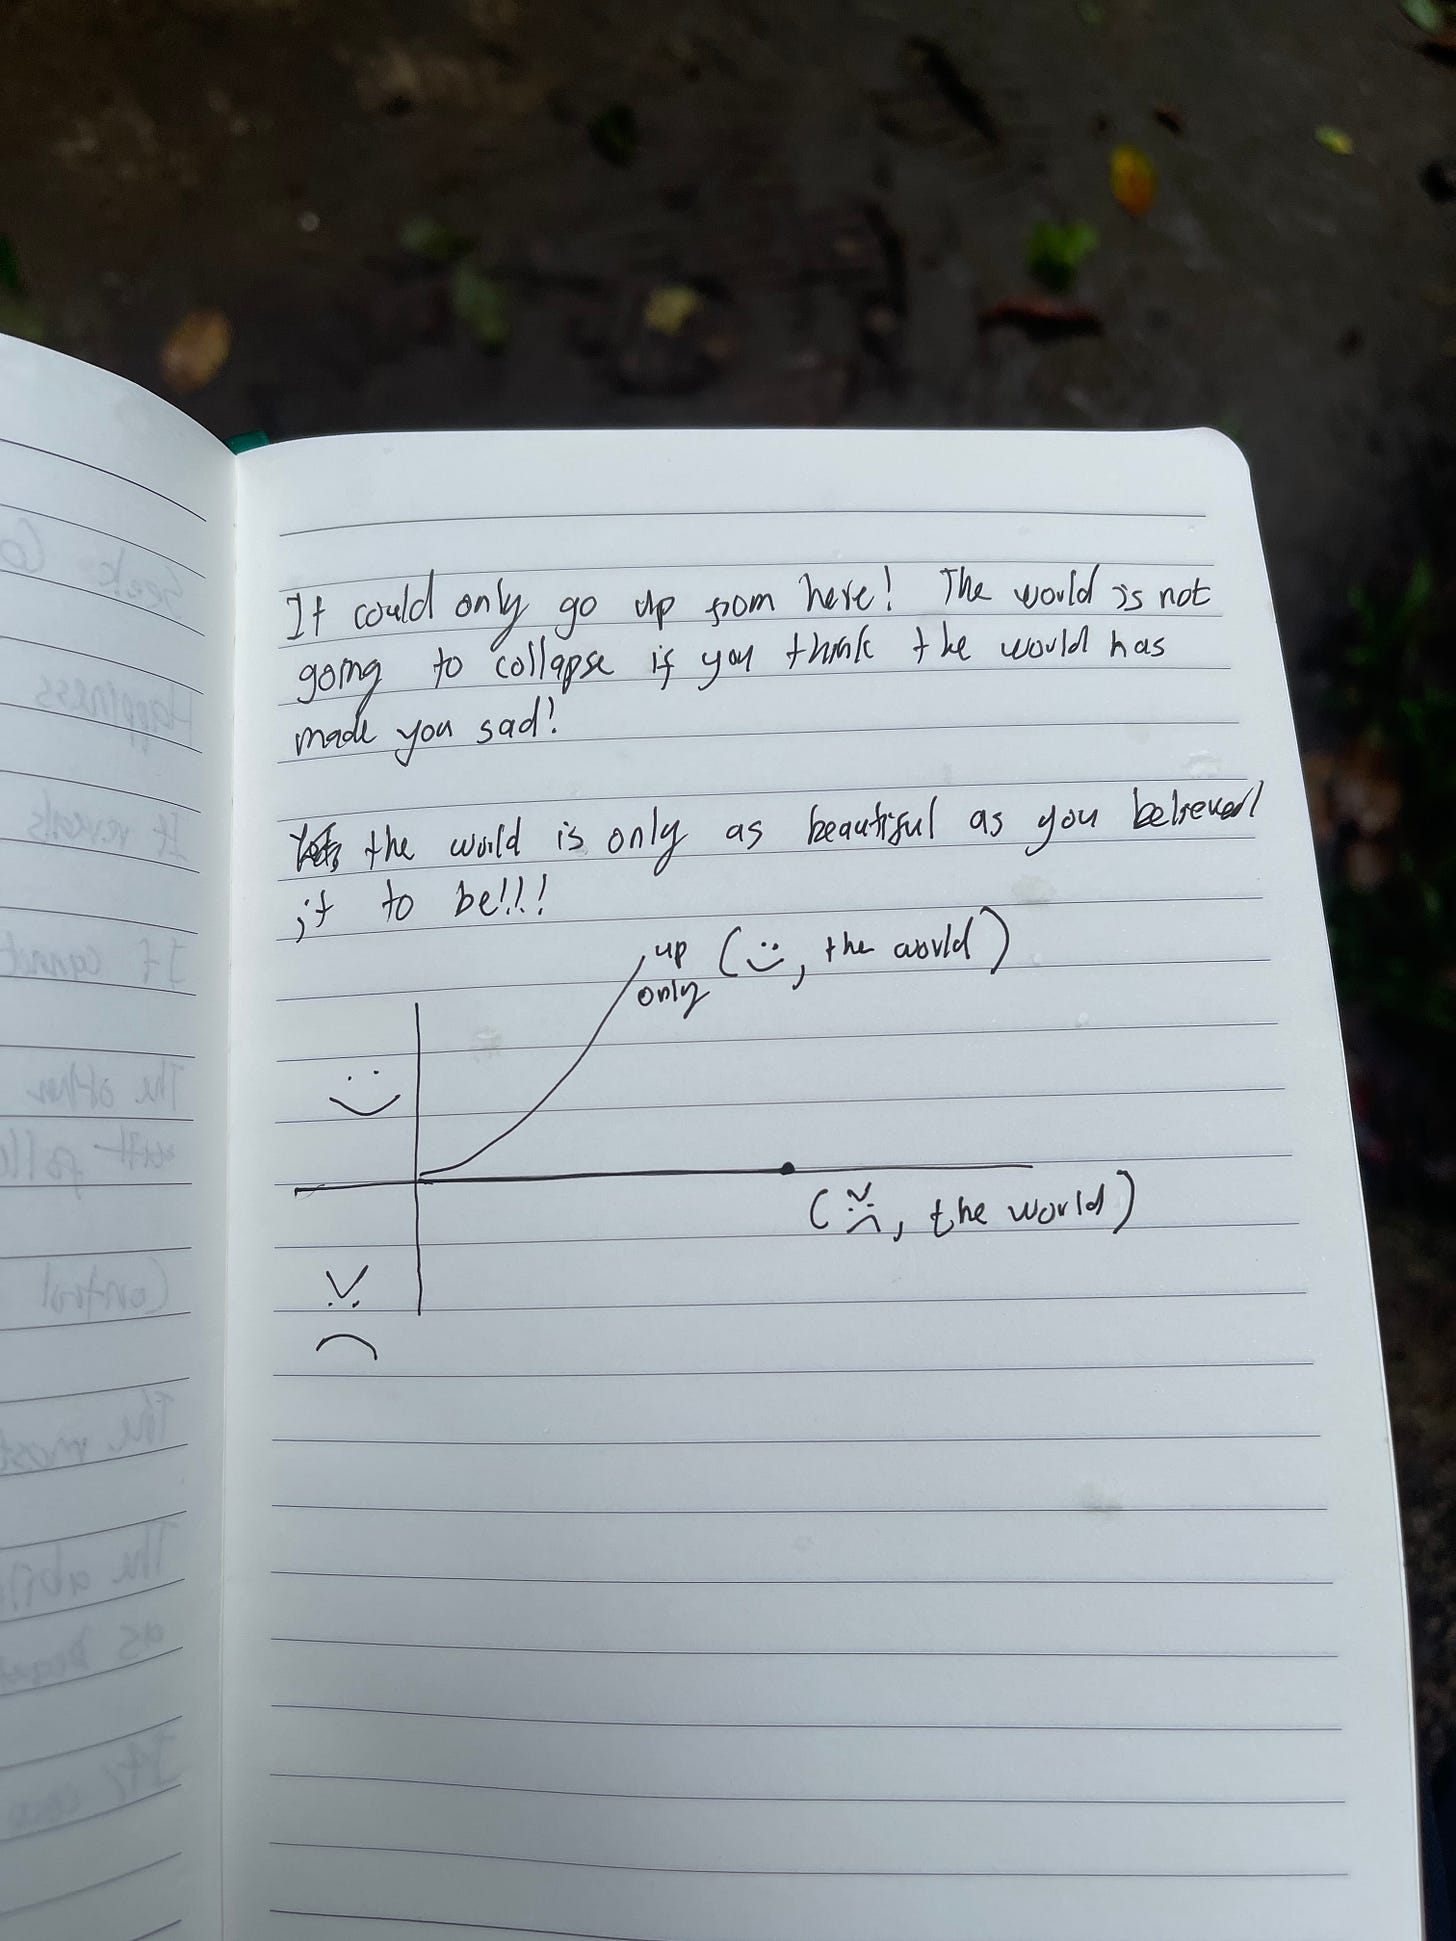 It could only go up from here! The world is not
going to collapse if you think the world has
made you sad!
the world is only as beautiful as you believed
it to be!!!
up only (, the world)
(, the world)